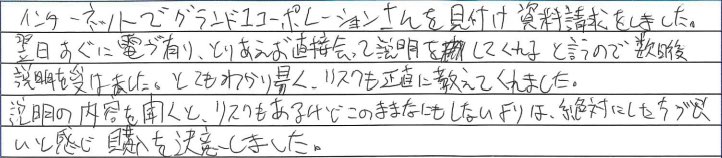 インターネットでグランド1コーポレーションさんを見付け資料請求をしました。
翌日すぐに電が有り、とりあえず直接会って説明をしてくれると言うので数日後
説明を受けました。とてもわかり易く、リスクも正直に教えてくれました。
説明の内容を聞くと、リスクもあるけどこのままなにもしないよりは、絶対にした方が良
いと感じ購入を決意しました。